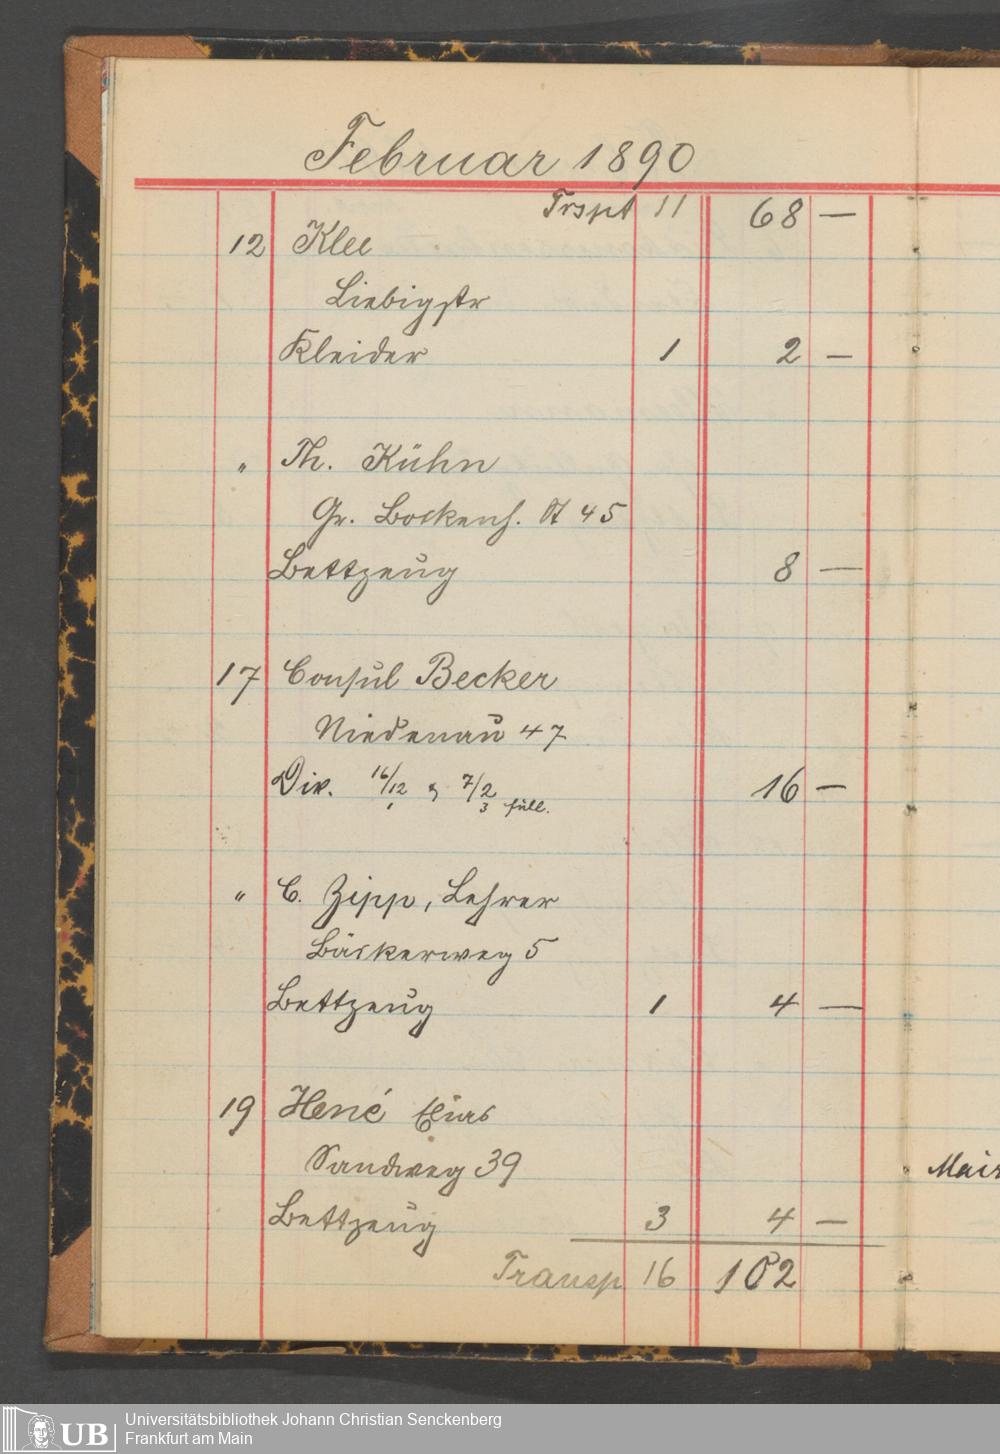 Februar 1890
Trspt 11 68 —
12 Klee
Liebigstr
Kleider 1 2 —
" Th. Kühn
Gr. Bockenh. St 45
Bettzeug 8 —
17 Consul Becker
Niedenau 47
Div. 16/12 & 7/2 16 —
1 3 füll.
" C. Zipp, Lehrer
Bäckerweg 5
Bettzeug 1 4 —
19 Hené Elias
Sandweg 39
Bettzeug 3 4 —
Transp 16 102
Universitätsbibliothek Johann Christian Senckenberg
Frankfurt am Main
UB